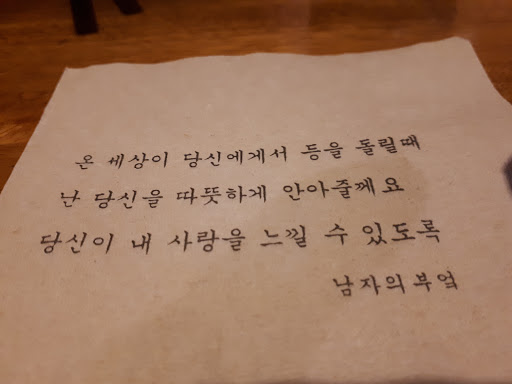 온 세상이 당신에게서 등을 돌릴때
난 당신을 따뜻하게 안아줄께요
당신이 내 사랑을 느낄 수 있도록
남자의부엌